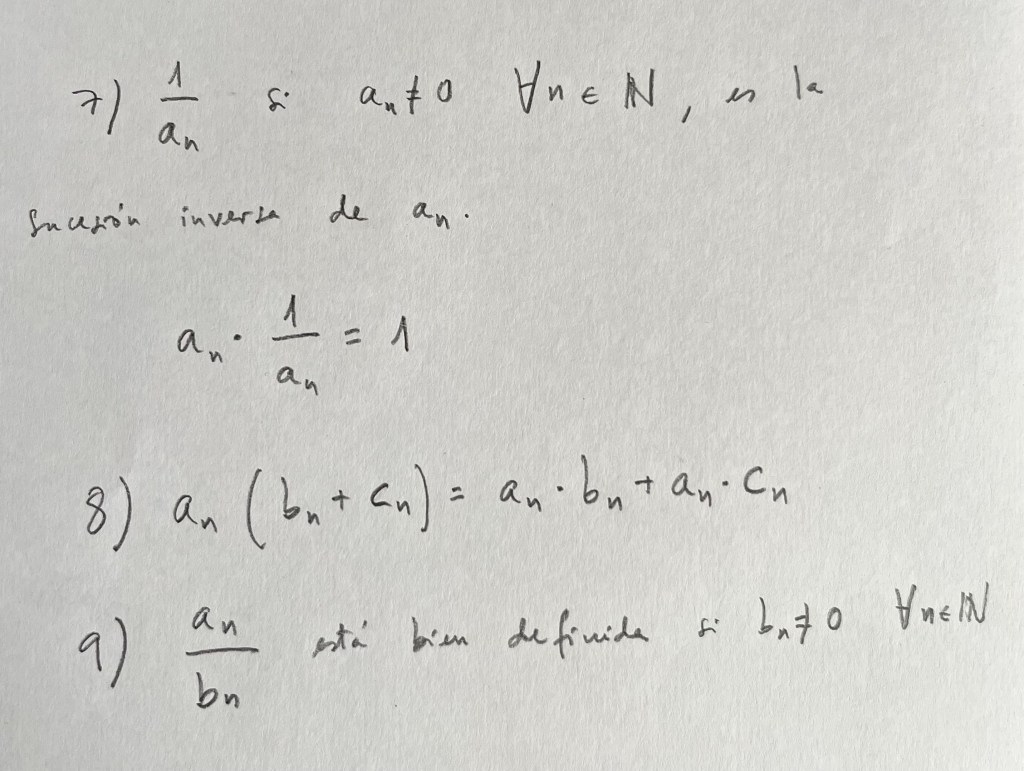 7) 1/aₙ si aₙ ≠ 0 ∀n ∈ ℕ, es la
sucesión inversa de aₙ.
aₙ · 1/aₙ = 1
8) aₙ (bₙ + cₙ) = aₙ · bₙ + aₙ · cₙ
9) aₙ/bₙ está bien definida si bₙ ≠ 0 ∀n∈ℕ